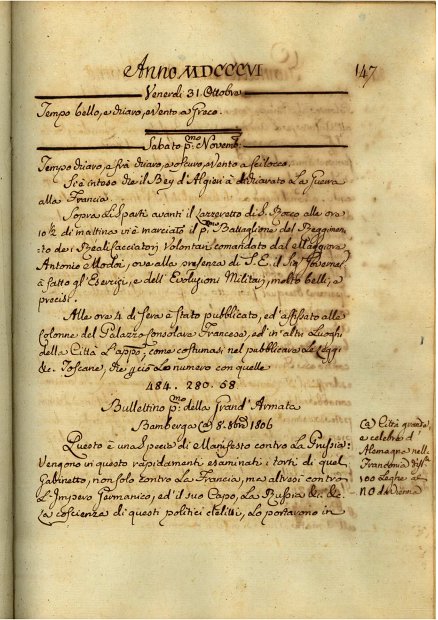 Anno MDCCCVI
147
Venerdì 31 Ottobre
Tempo bello, e chiaro, e vento a Greco.
Sabato p.mo Novemb.
Tempo chiaro, e frà chiaro, e oscuro, e vento a scilocco.
Si è inteso che il Bey d'Algieri à dichiarato la guerra
alla Francia
Sopra li Sparti avanti il Lazzeretto di S. Rocco alle ore
10½ di mattina vi è marciato il p.mo Battaglione del Reggimen-
to de i Reali Cacciatori Volontari comandato dal Maggiore
Antonio, ove alla presenza di S. E. il Sig.
à fatto gl'Esercizi, e dell'Evoluzioni Militari, molto belli, e
precisi.
Alle ore 4 di sera è stato pubblicato, ed affissato alle
Colonne del Palazzo Consolare Francese, ed in altri Luoghi
della Città l'appo, come costumasi nel pubblicare le Leggi
&c. Toscane, che lo numero con quelle
484. 280. 68
Bullettino p.mo della Grand'Armata
Bamberga (a) 8. 8bre 1806
Questo è una Specie di Manifesto contro la Prussia:
Vengono in questo rapidamente esaminati i torti di quel
Gabinetto, non solo contro la Francia, ma altresì contro
l'Impero Germanico, ed il suo Capo, la Russia &c. &c.
La coscienza di questi politici delitti, lo portarono in
(a) Città grande
e celebre d'
Alemagna nell
Franconia
100 Leghe al
N O di Vienna